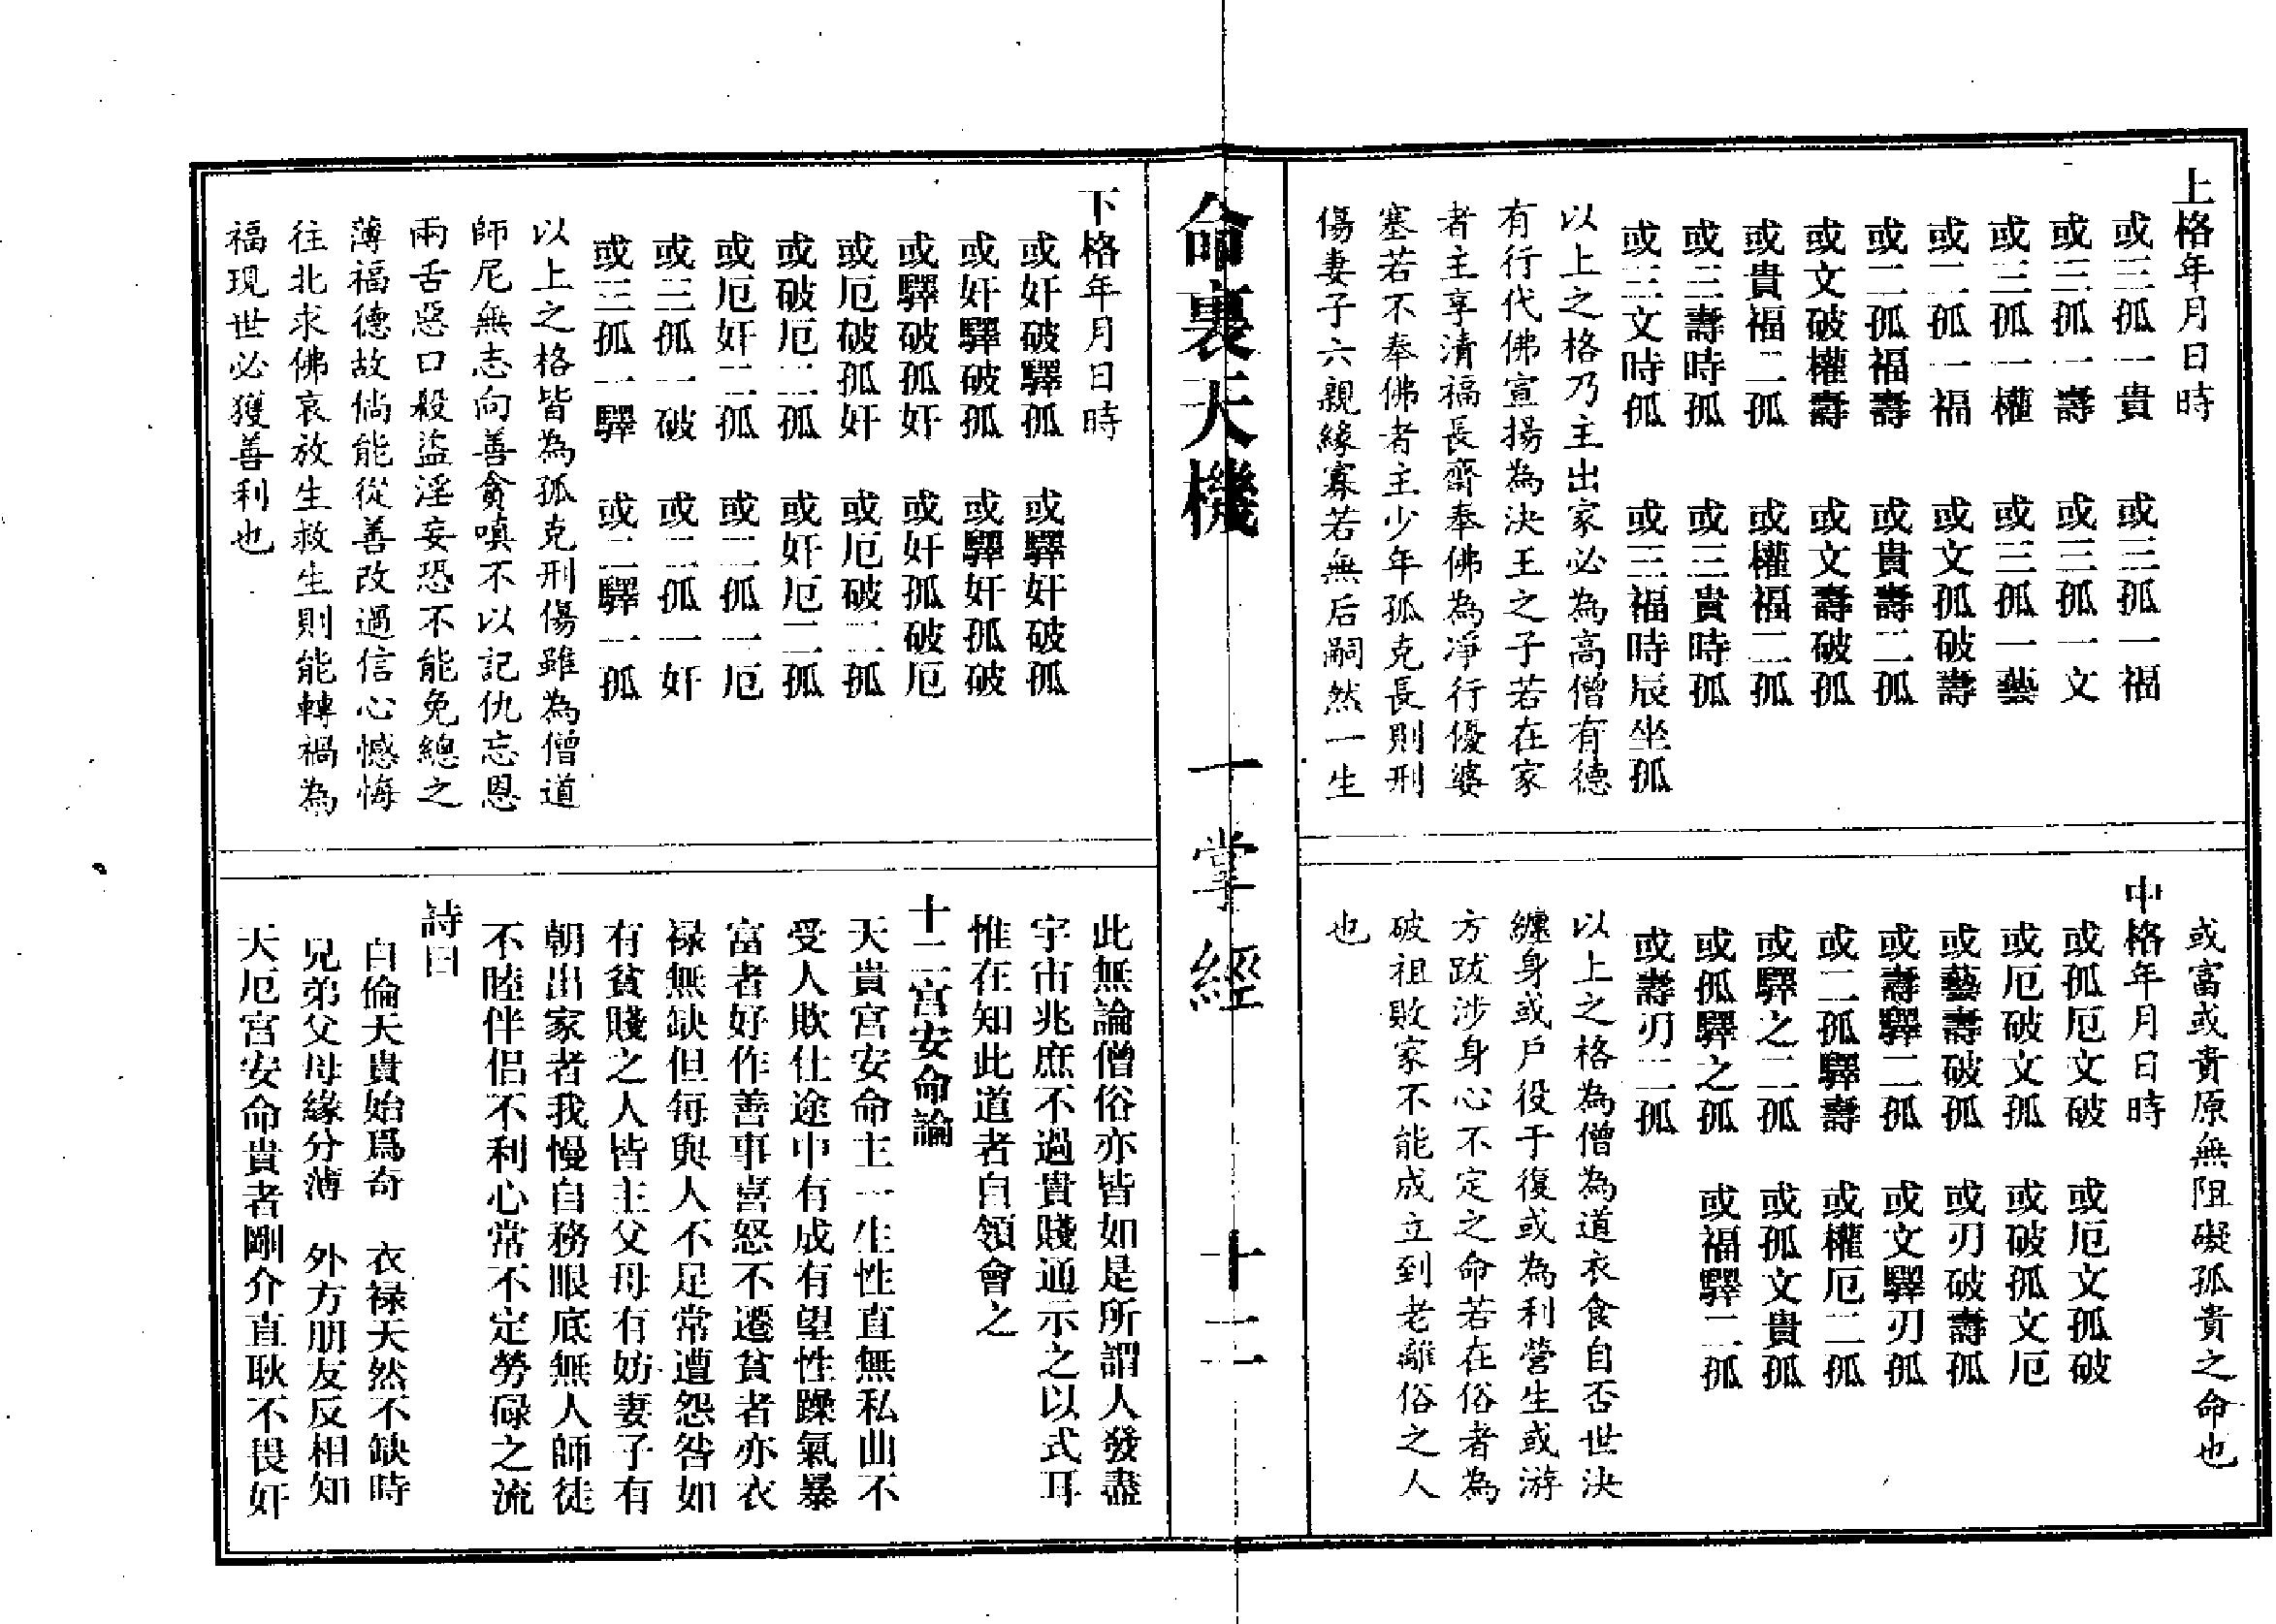 上格年月日時
或三孤一貴　或三孤一福
或三孤一壽　或三孤一文
或三孤一權　或三孤一藝
或二孤一福　或文孤破壽
或二孤福壽　或貴壽二孤
或文破權壽　或文壽破孤
或貴福二孤　或權福二孤
或三壽時孤　或三貴時孤
或三文時孤　或三福時辰坐孤
以上之格乃主出家必為高僧有德
有行代佛宣揚為決王之子若在家
者主享清福長齋奉佛為淨行優婆
塞若不奉佛者主少年孤克長則刑
傷妻子六親緣寡若無后嗣然一生
或富或貴原無阻礙孤貴之命也
中格年月日時
或孤厄文破　或厄文孤破
或厄破文孤　或破孤文厄
或藝壽破孤　或刃破壽孤
或壽驛二孤　或文驛刃孤
或二孤驛壽　或權厄二孤
或驛之二孤　或孤文貴孤
或孤驛之孤　或福驛二孤
或壽刃二孤
以上之格為僧為道衣食自否世決
纏身或戶役于復或為利營生或游
方跋涉身心不定之命若在俗者為
破祖敗家不能成立到老離俗之人
也
命裏天機　一掌經　十二
下格年月日時
或奸破驛孤　或驛奸破孤
或奸驛破孤　或驛奸孤破
或驛破孤奸　或奸孤破厄
或厄破孤奸　或厄破二孤
或破厄二孤　或奸厄二孤
或厄奸二孤　或二孤一厄
或三孤一破　或二孤一奸
或三孤一驛　或二驛一孤
以上之格皆為孤克刑傷雖為僧道
師尼無志向善貪嗔不以記仇忘恩
兩舌惡口殺盜淫妄恐不能免總之
薄福德故倘能從善改過信心憾悔
往北求佛哀放生救生則能轉禍為
福現世必獲善利也
此無論僧俗亦皆如是所謂人發盡
宇宙兆庶不過貴賤通示之以式耳
惟在知此道者自領會之
十二宮安命論
天貴宮安命主一生性直無私曲不
受人欺仕途中有成有望性躁氣暴
富者好作善事喜怒不遷貧者亦衣
祿無缺但每與人不足常遭怨咎如
有貧賤之人皆主父母有妨妻子有
朝出家者我慢自務眼底無人師徒
不睦伴侶不利心常不定勞碌之流
詩曰
自倫天貴始爲奇　衣祿天然不缺時
兄弟父母緣分薄　外方朋友反相知
天厄宮安命貴者剛介直耿不畏奸